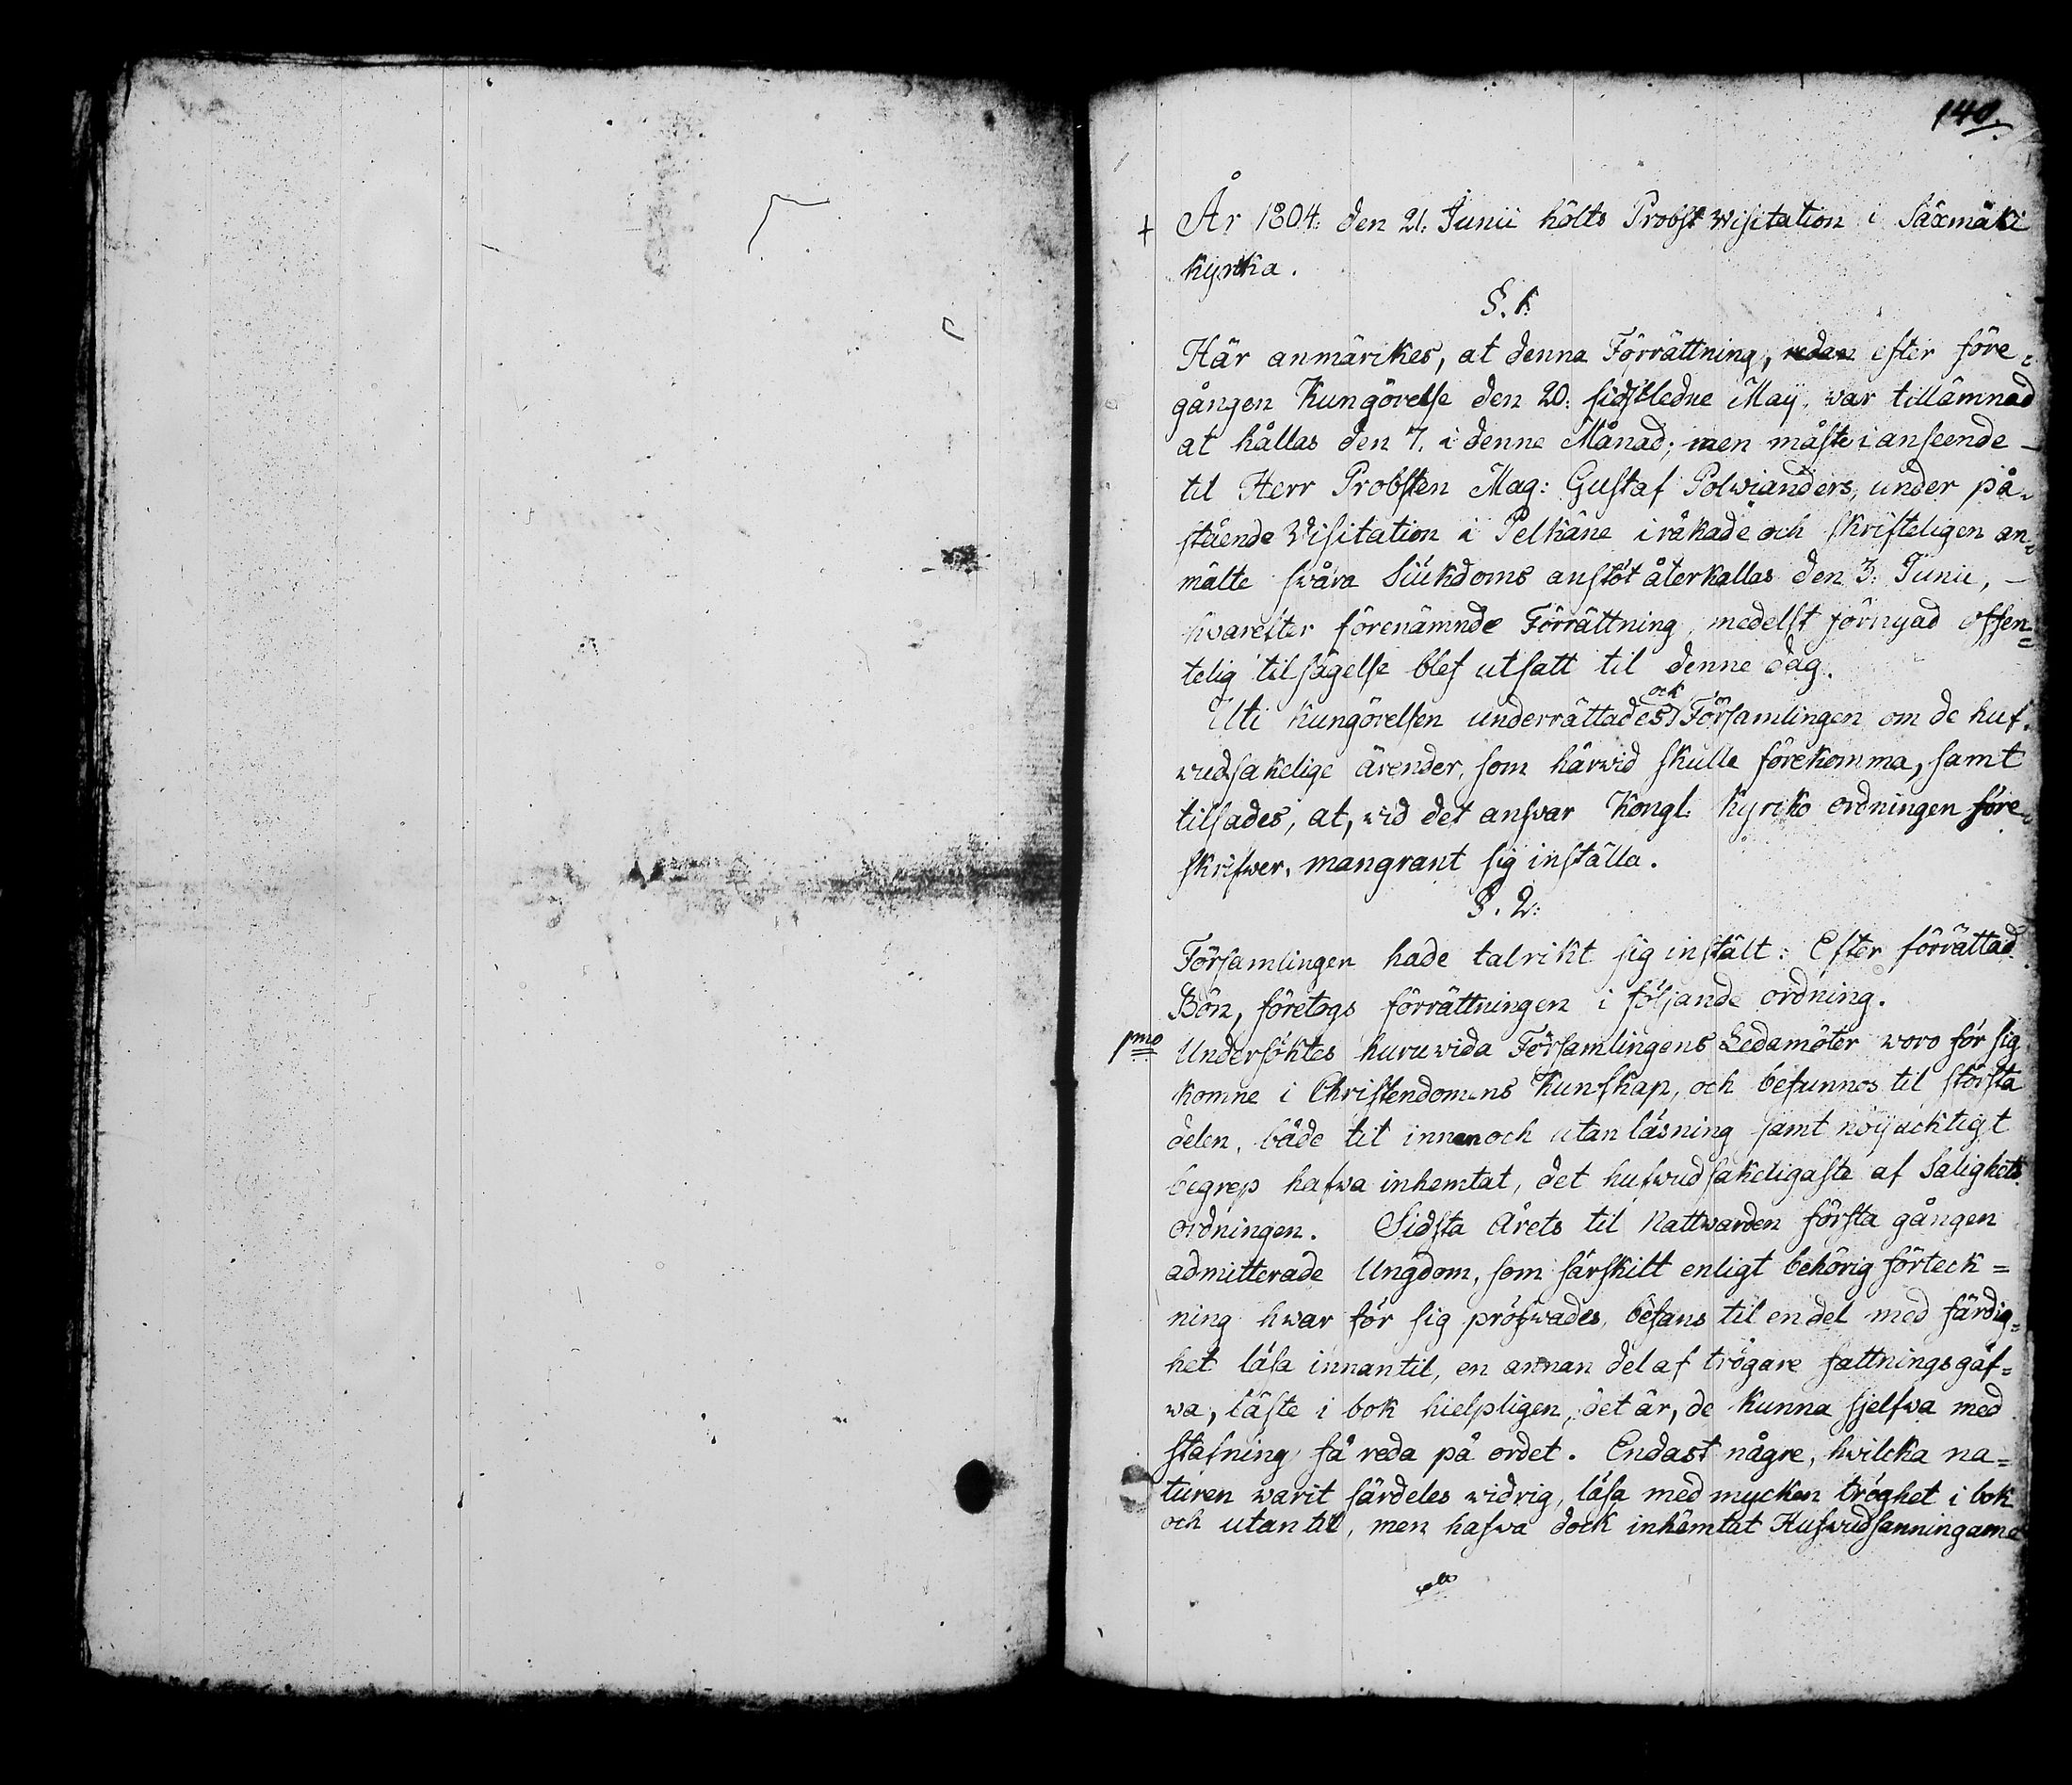 140.
År 1804. den 21. Junii hölts Probst Wisitation i Säxmäki
kyrka.
§. 1.
Här anmärkes, at denna Förrättning, redan efter före-
gången Kungörelse den 20. sidstledne Maij, war tillämnad
at hållas den 7. i denne Månad; men måste i anseende
til Herr Probsten Mag: Gustaf Polwianders, under på-
stående Visitation i Pelkäne iråkade och skrifteligen an-
mälte swåra Siukdoms anstöt återkallas den 3. Junii,
hwarefter förenämnde Förrättning, medelst förnyad offen-
telig tilsägelse blef utsatt til denne dag.
Uti kungörelsen underrättades och Församlingen om de huf-
wudsakelige ärender, som härwid skulle förekomma, samt
tilsades, at, wid det answar Kongl. Kyrko ordningen före-
skrifwer, mangrant sig inställa.
§. 2.
Församlingen hade talrikt sig instält: Efter förrättad
Bön, företogs förrättningen i följande ordning.
1mo Undersöktes huruwida Församlingens Ledamöter woro för sig
komne i Christendomens Kunskap, och befunnos til största
delen, både til innan och utan läsning samt nöyacktigt
begrep hafwa inhemtat, det hufwudsakeligaste af Salighets
ordningen. Sidsta Årets til Nattwarden första gången
admitterade Ungdom, som särskilt enligt behörig förteck=
ning hwar för sig pröfwades, befans til en del med färdig=
het läsa innantil, en annan del af trögare fattningsgåf=
wa, läste i bok hielpligen, det är, de kunna sjelfwa med
stafning få reda på ordet. Endast någre, hwilcka na=
turen warit särdeles widrig, läsa med mycken tröghet i bok
och utantil, men hafwa dock inhämtat Hufwudsanningarne